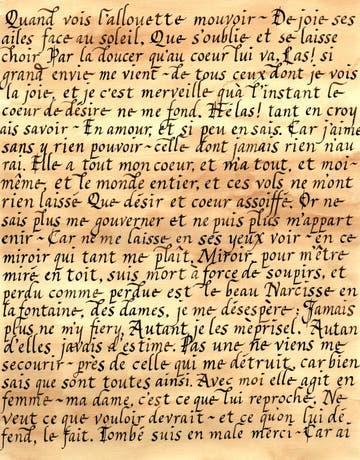 Quand vois l'allouette mouvoir ~ De joie ses
ailes face au soleil, Que s'oublie et se laisse
choir, Par la doucer qu'au coeur lui va, Las! si
grand envie me vient ~ de tous ceux dont je vois
la joie, et je c'est merveille qu'à l'instant le
coeur de désire ne me fond. Hélas! tant en croy
ais savoir ~ En amour, et si peu en sais. Car j'aime
sans y rien pouvoir ~ celle dont jamais rien n'au
rai. Elle a tout mon coeur, et m'a tout, et moi-
même, et le monde entier, et ces vols ne m'ont
rien laisse Que désir et coeur assoiffé. Or ne
sais plus me gouverner et ne puis plus m'appart
enir ~ Car ne me laisse, en ses yeux voir ~ en ce
miroir qui tant me plaît. Miroir, pour m'être
miré en toit, suis mort à force de soupirs, et
perdu comme perdue est le beau Narcisse en
la fontaine, des dames, je me désespère; Jamais
plus ne m'y fiery, Autant je les méprisel. Autan
d'elles javdis d'estime. Pas une ne viens me
secourir ~ près de celle qui me détruit, car bien
sais que sont toutes ainsi. Avec moi elle agit en
femme ~ ma dame, c'est ce lui reproche, Ne
veut ce que vouloir devrait ~ et ce quon lui dé
fend, le fait. Tombé suis en male merci ~ Car ai